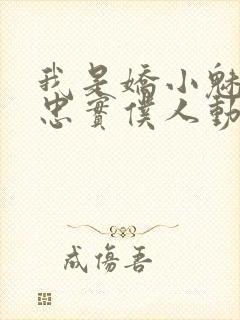 我是嬌小魅
忠實僕人動
成傷吾